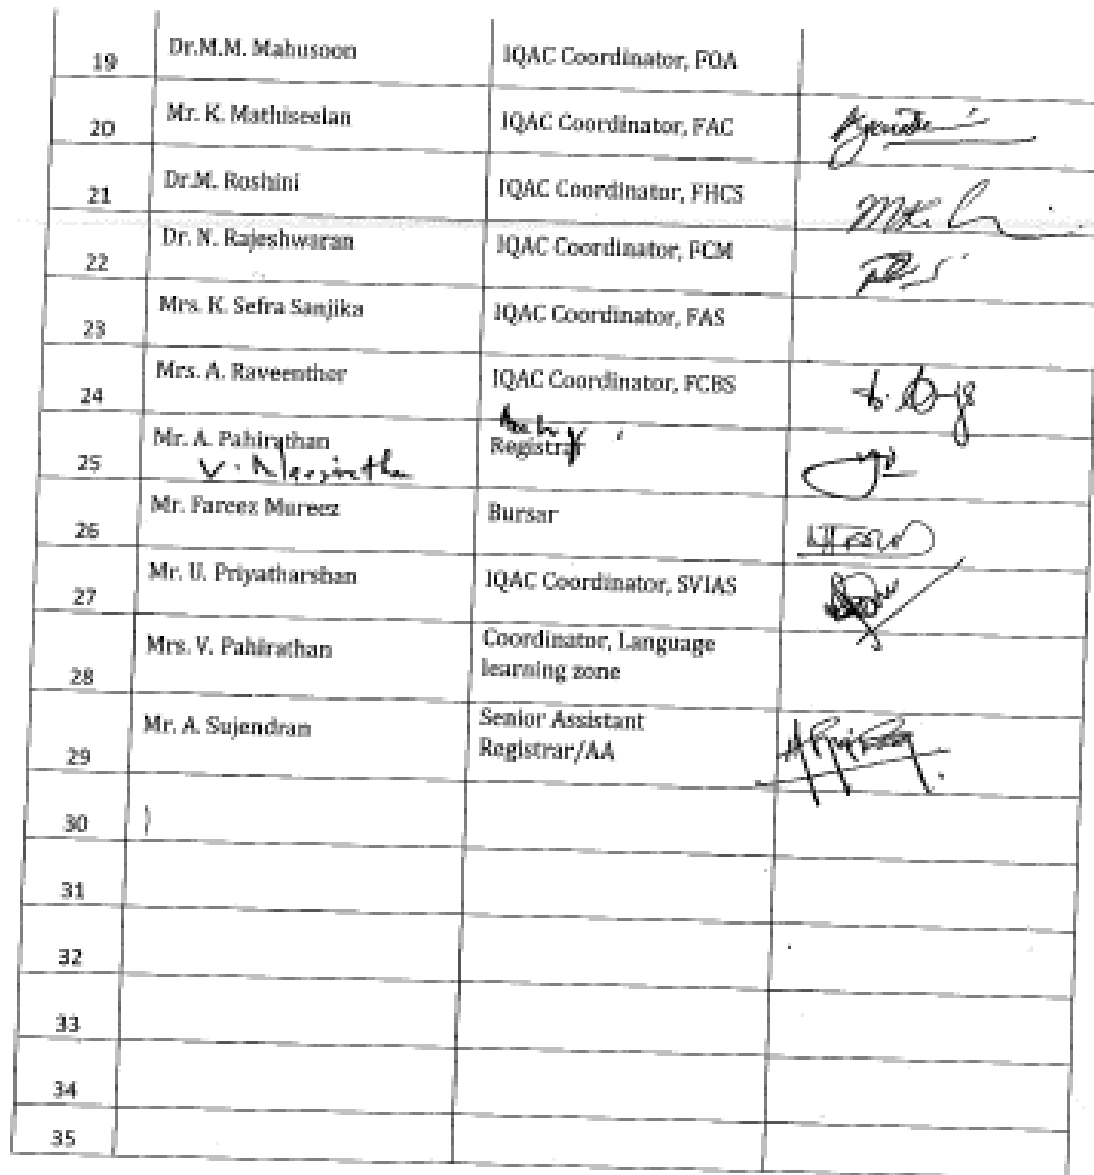 19 Dr.M.M. Mahusoon IQAC Coordinator, FOA
20 Mr. K. Mathiseelan IQAC Coordinator, FAC
21 Dr.M. Roshini IQAC Coordinator, FHCS
22 Dr. N. Rajeshwaran IQAC Coordinator, FCM
23 Mrs. K. Sefra Sanjika IQAC Coordinator, FAS
24 Mrs. A. Raveenther IQAC Coordinator, FCBS
25 Mr. A. Pahirathan Registrar
26 Mr. Fareez Mureez Bursar
27 Mr. U. Priyatharshan IQAC Coordinator, SVIAS
28 Mrs. V. Pahirathan Coordinator, Language
learning zone
29 Mr. A. Sujendran Senior Assistant
Registrar/AA
30
31
32
33
34
35